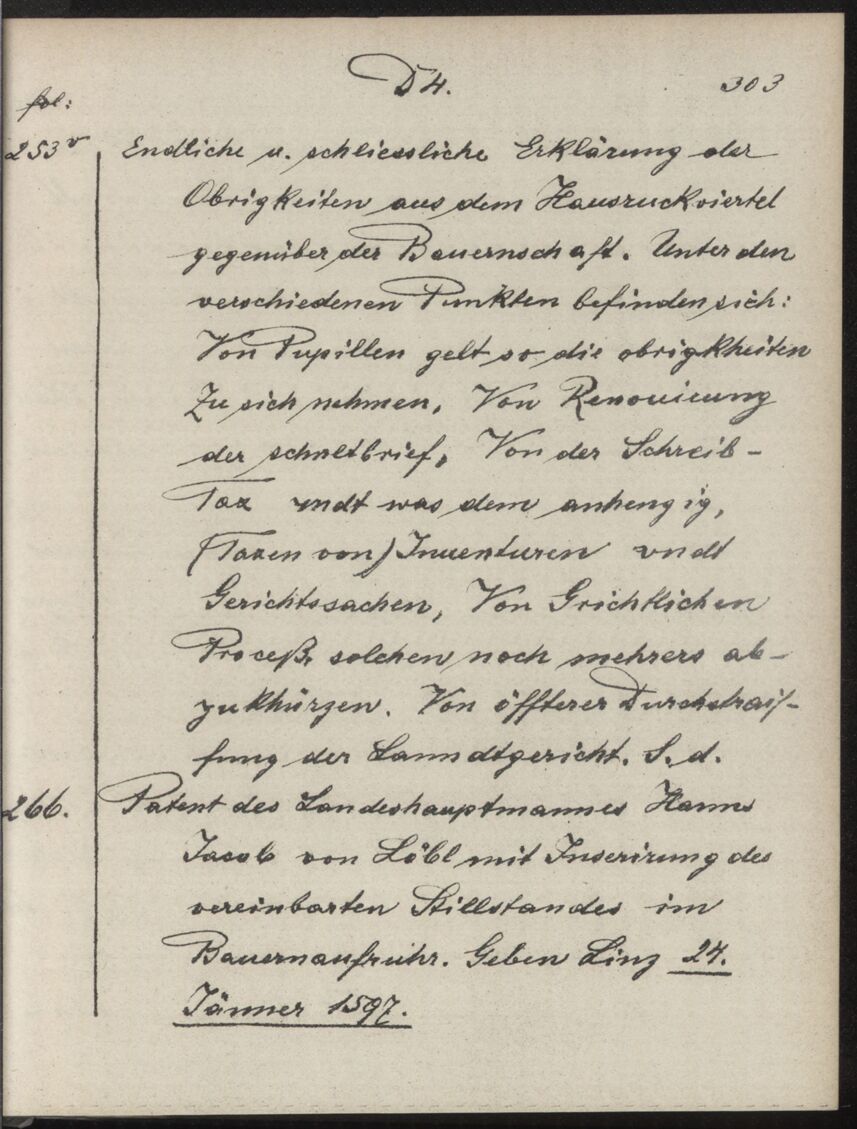 D 4. 303
fol:
253v Endliche u. schliessliche Erklärung der
Obrigkeiten aus dem Hausruckviertel
gegenüber der Bauernschaft. Unter den
verschiedenen Punkten befinden sich:
Von Pupillen gelt so die obrigkheiten
zu sich nehmen, Von Renouirung
der schuelbrief, Von der Schreib-
Tax vndt was dem anhengig,
(Taxen von) Inuenturen vndt
Gerichtssachen, Von Grichtlichen
Proceß, solchen noch mehrers ab-
zukhürzen. Von öffterer Durchstraif-
fung der Lanndtgericht. S. d.
266. Patent des Landeshauptmannes Hanns
Jacob von Löbl mit Inserirung des
vereinbarten Stillstandes im
Bauernaufruhr. Geben Linz 24.
Jänner 1597.